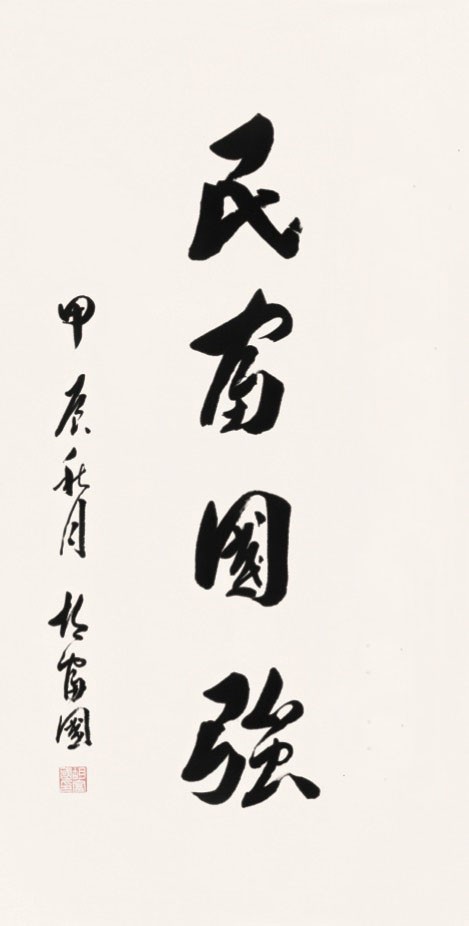 民富國強
甲辰秋月 胡富國